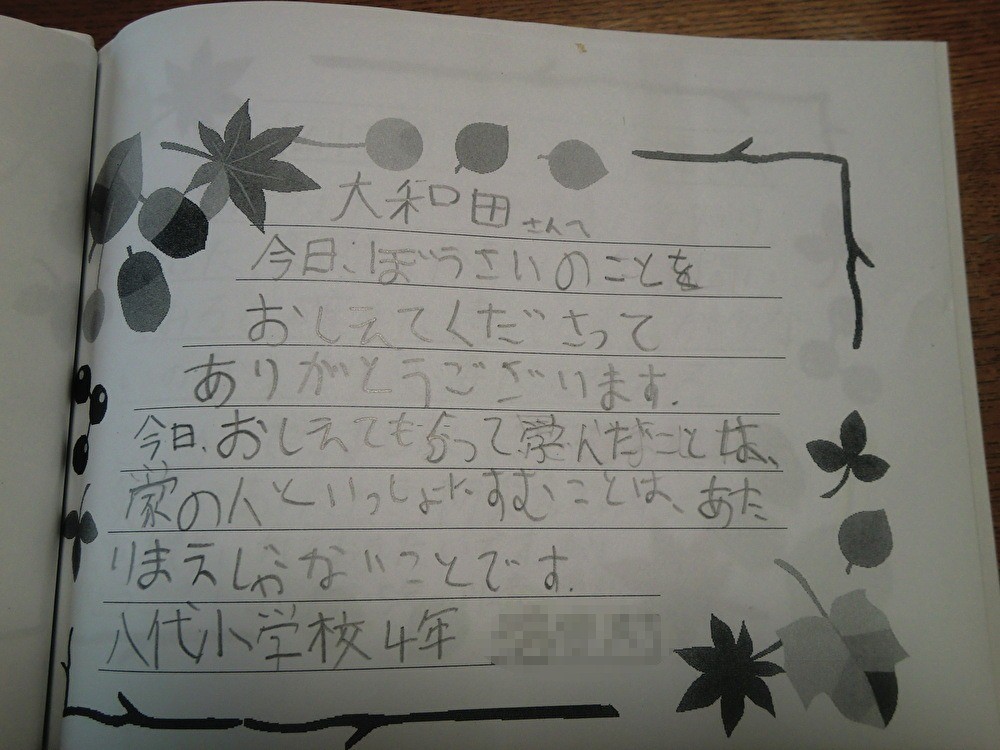 大和田さんへ
今日、ぼうさいのことを
おしえてくださって
ありがとうございます.
今日、おしえてもらって学んだことは、
家の人といっしょにすむことは、あた
りまえじゃないことです.
八代小学校4年